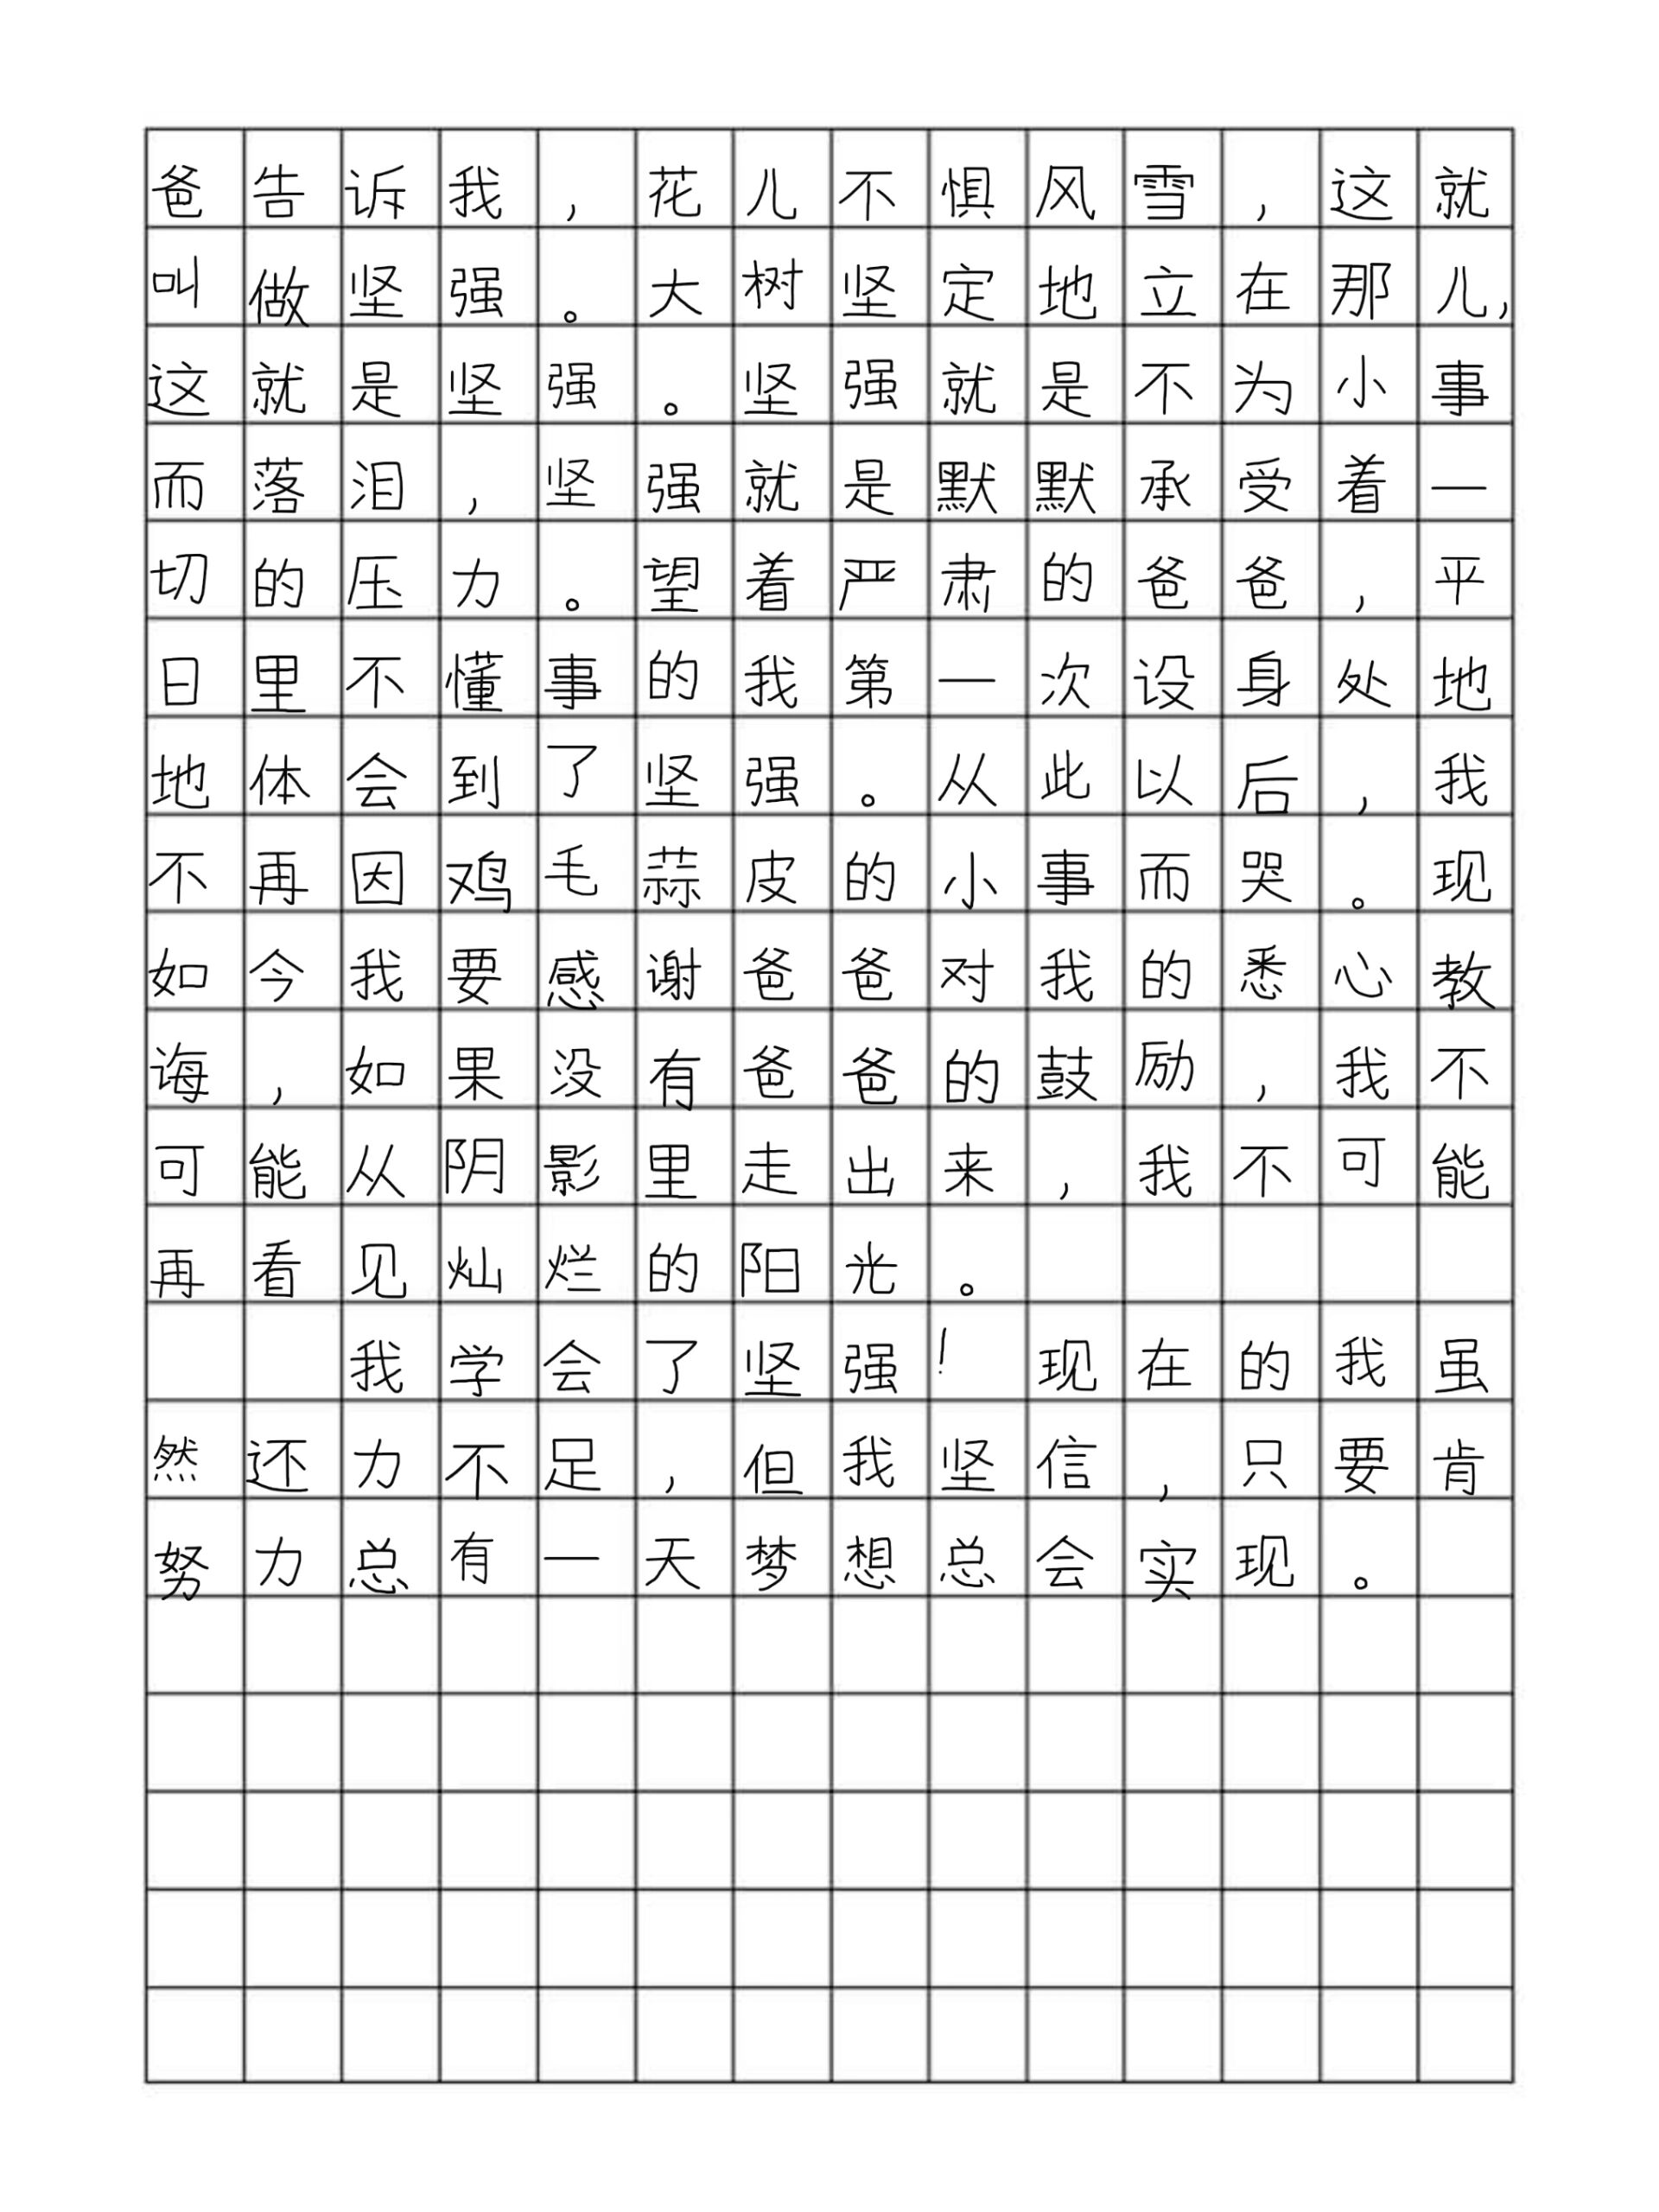 爸告诉我，花儿不惧风雪，这就
叫做坚强。大树坚定地立在那儿，
这就是坚强。坚强就是不为小事
而落泪，坚强就是默默承受着一
切的压力。望着严肃的爸爸，平
日里不懂事的我第一次设身处地
地体会到了坚强。从此以后，我
不再因鸡毛蒜皮的小事而哭。现
如今我要感谢爸爸对我的悉心教
诲，如果没有爸爸的鼓励，我不
可能从阴影里走出来，我不可能
再看见灿烂的阳光。
我学会了坚强！现在的我虽
然还力不足，但我坚信，只要肯
努力总有一天梦想总会实现。